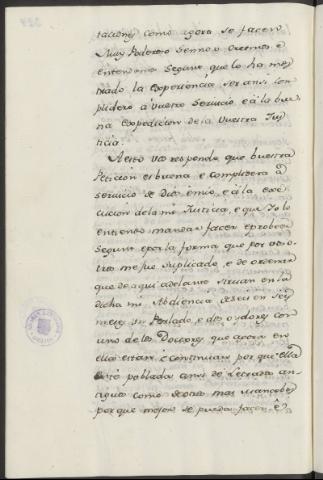 taciones como agora se facen
Muy Poderoso Sennor creemos é
entendemos segunt que lo ha mos
trado la esperiencia ser ansi con
plidero á vuestro servicio é á la bue
na espedicion de la Vuestra Jus
ticia.
A esto vos respondo que vuestra
Peticion es buena e complidera á
servicio de Dios e mio, e á la exe
cucion de la mi Justicia, e que Yo lo
entiendo mandar facer e proveer
segunt e por la forma que por voso
tros me fue suplicado, e de ordenar
que de aqui adelante sirvan en la
dicha mi Abdiencia de seis en seis
meses un Perlado, e dos oydores con
uno de los Doctores, que agora en
ella estan, e continuan por que ella
esté poblada ansi de Letrados an
tiguos como de otros mas mancebos
porque mejor se pueda facer é